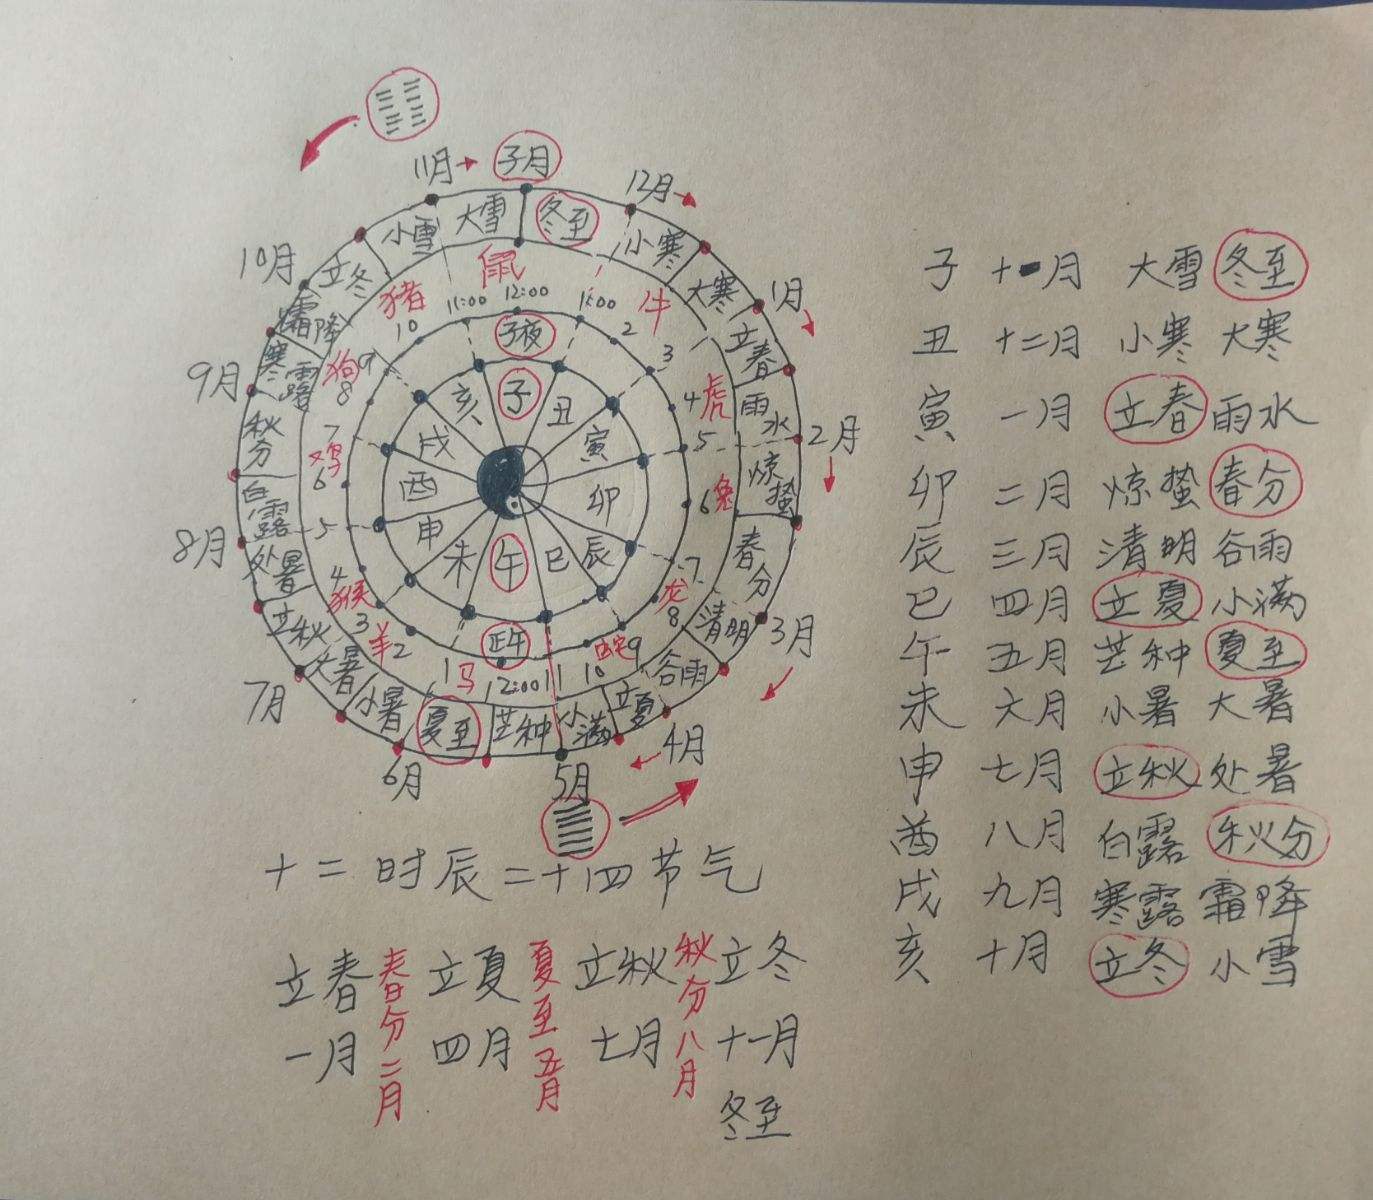 11月
子月
12月
1月
2月
3月
4月
5月
6月
7月
8月
9月
10月
大雪
冬至
小寒
大寒
立春
雨水
惊蛰
春分
清明
谷雨
立夏
小满
芒种
夏至
小暑
大暑
立秋
处暑
白露
秋分
寒露
霜降
立冬
小雪
鼠
牛
虎
兔
龙
蛇
马
羊
猴
鸡
狗
猪
11:00
12:00
1:00
2
3
4
5
6
7
8
9
10
11
12:00
1
2
3
4
5
6
7
8
9
10
子夜
正午
子
丑
寅
卯
辰
巳
午
未
申
酉
戌
亥
子 十一月 大雪 冬至
丑 十二月 小寒 大寒
寅 一月 立春 雨水
卯 二月 惊蛰 春分
辰 三月 清明 谷雨
巳 四月 立夏 小满
午 五月 芒种 夏至
未 六月 小暑 大暑
申 七月 立秋 处暑
酉 八月 白露 秋分
戌 九月 寒露 霜降
亥 十月 立冬 小雪
十二时辰二十四节气
立春 春分 立夏 夏至 立秋 秋分 立冬
一月 二月 四月 五月 七月 八月 十一月
冬至